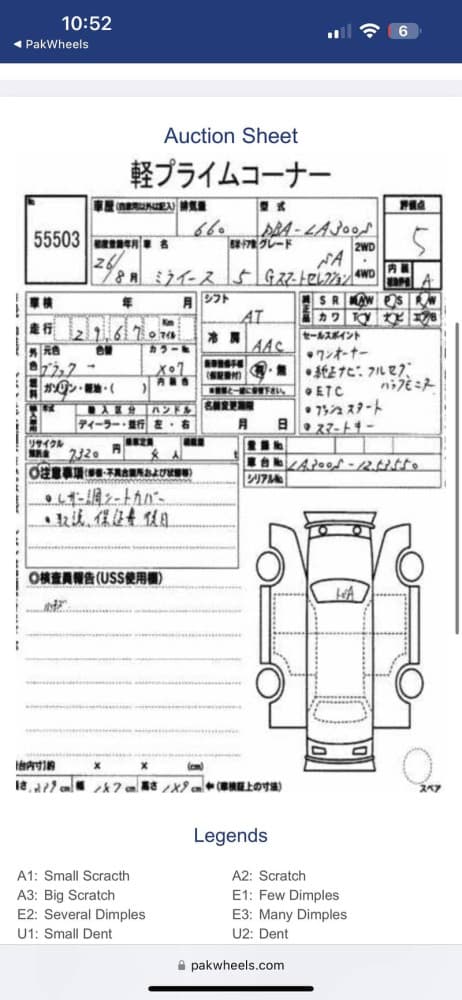 10:52
6
◀ PakWheels
Auction Sheet
軽プライムコーナー
No
55503
車歴(自家用以外は記入)
排気量
660
型式
DBA-LA300S
評価点
5
初度登録年月
26/8月
車名
ミライース
ドア数
5
グレード
SA
Gスマートセレクション
2WD
4WD
内装
A
車検 年 月
シフト
AT
純正品
SR
AW
PS
PW
カワ
TV
ナビ
エアB
走行
29,670
Km
マイル
冷房
AAC
セールスポイント
・ワンオーナー
・純正ナビ、フルセグ
・ETC
・プッシュスタート
・スマートキー
外色
元色
色替
カラーNo
ブラック
X07
内装色
燃料
ガソリン・軽油・( )
有・無
輸入区分
ハンドル
ディーラー・並行
左・右
名義変更期限
月 日
リサイクル預託金
7320円
乗車定員
人
登録No
車台No
LA300S-1253550
シリアルNo
◎注意事項
・レザー調シートカバー
・取説、保証書後日
◎検査員報告(USS使用欄)
X X (cm)
cm 幅 147 cm 高さ 149 cm ←(車検証上の寸法)
スペア
Legends
A1: Small Scracth
A2: Scratch
A3: Big Scratch
E1: Few Dimples
E2: Several Dimples
E3: Many Dimples
U1: Small Dent
U2: Dent
pakwheels.com